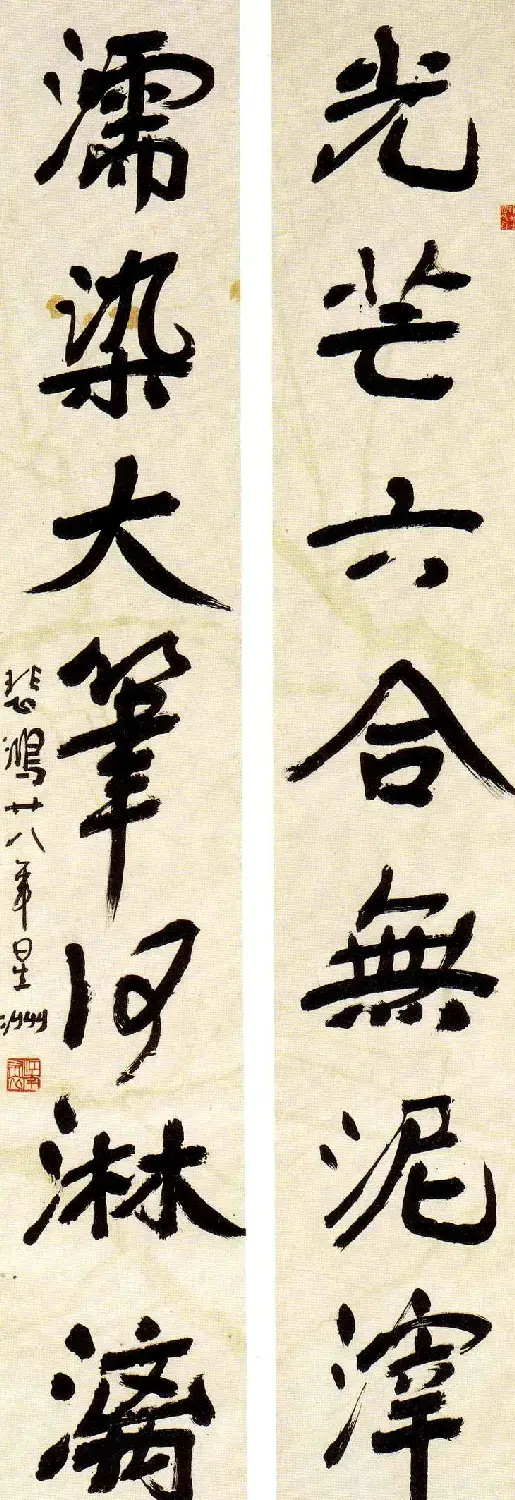 光芒六合無泥滓
濡染大筆何淋漓
悲鴻廿八年星洲